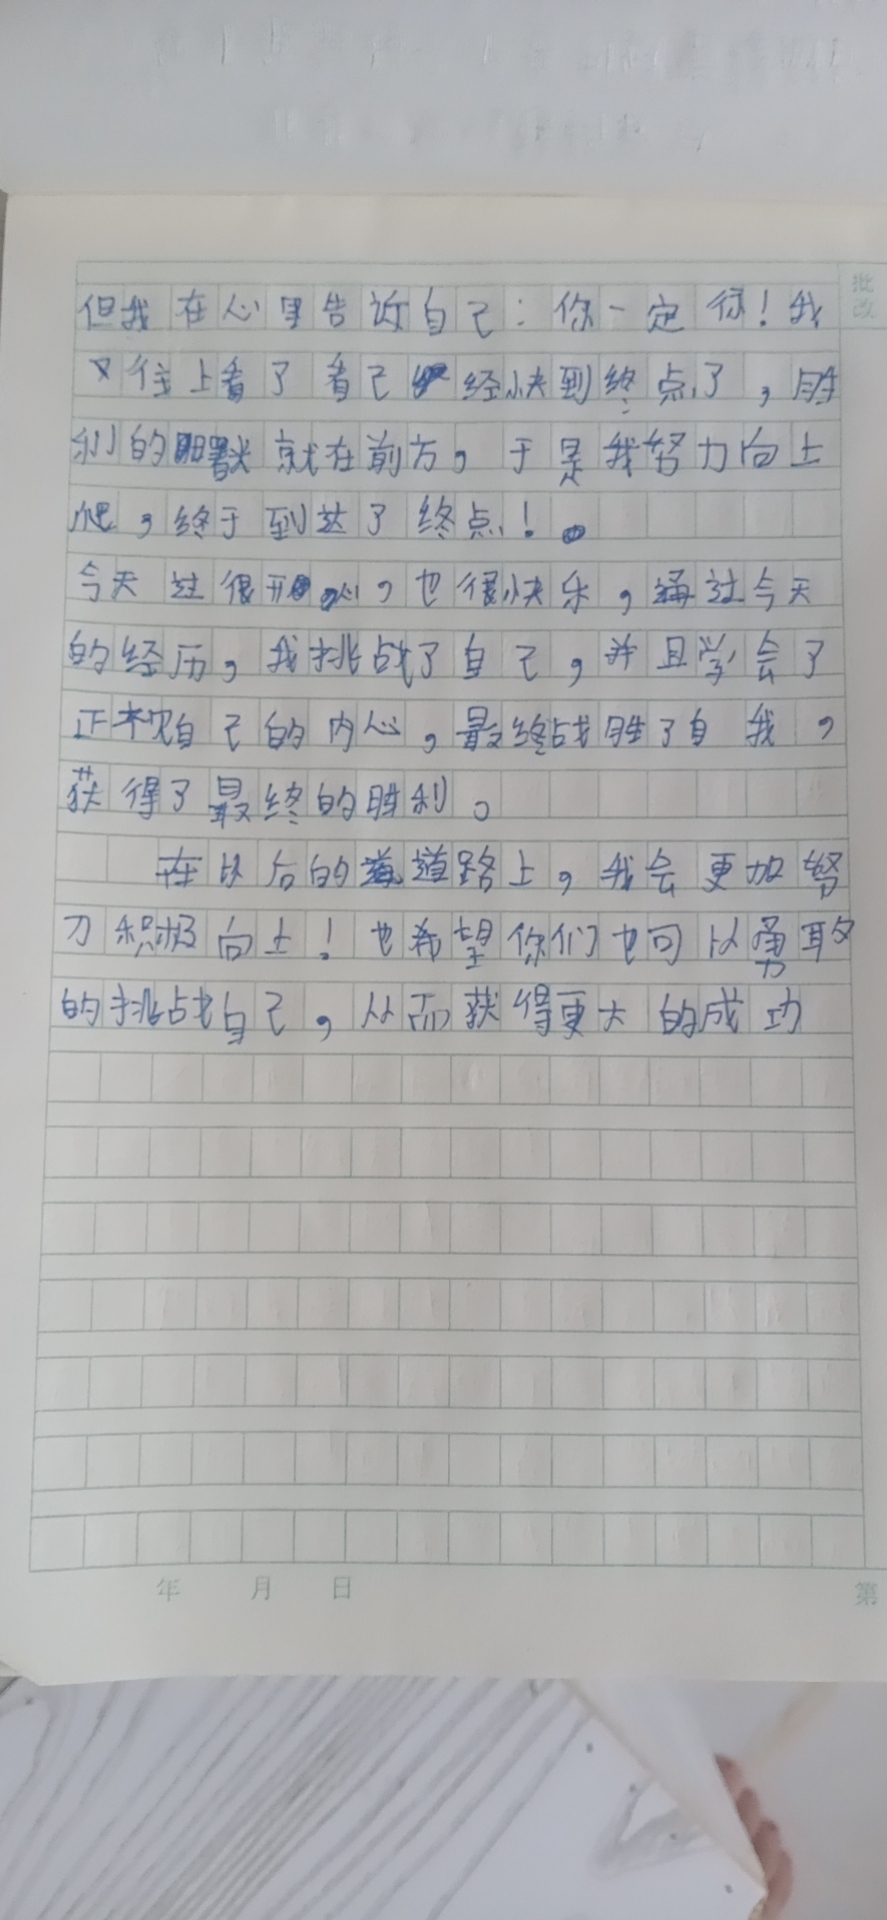 批改
但我在心里告诉自己：你一定行！我
又往上看了看己经快到终点了，胜
利的曙就在前方，于是我努力向上
爬，终于到达了终点！。
今天过很开心，也很快乐，通过今天
的经历，我挑战了自己，并且学会了
正视自己的内心，最终战胜了自我，
获得了最终的胜利。
在以后的道路上，我会更加努
力积极向上！也希望你们也可以勇敢
的挑战自己，从而获得更大的成功
年 月 日
第